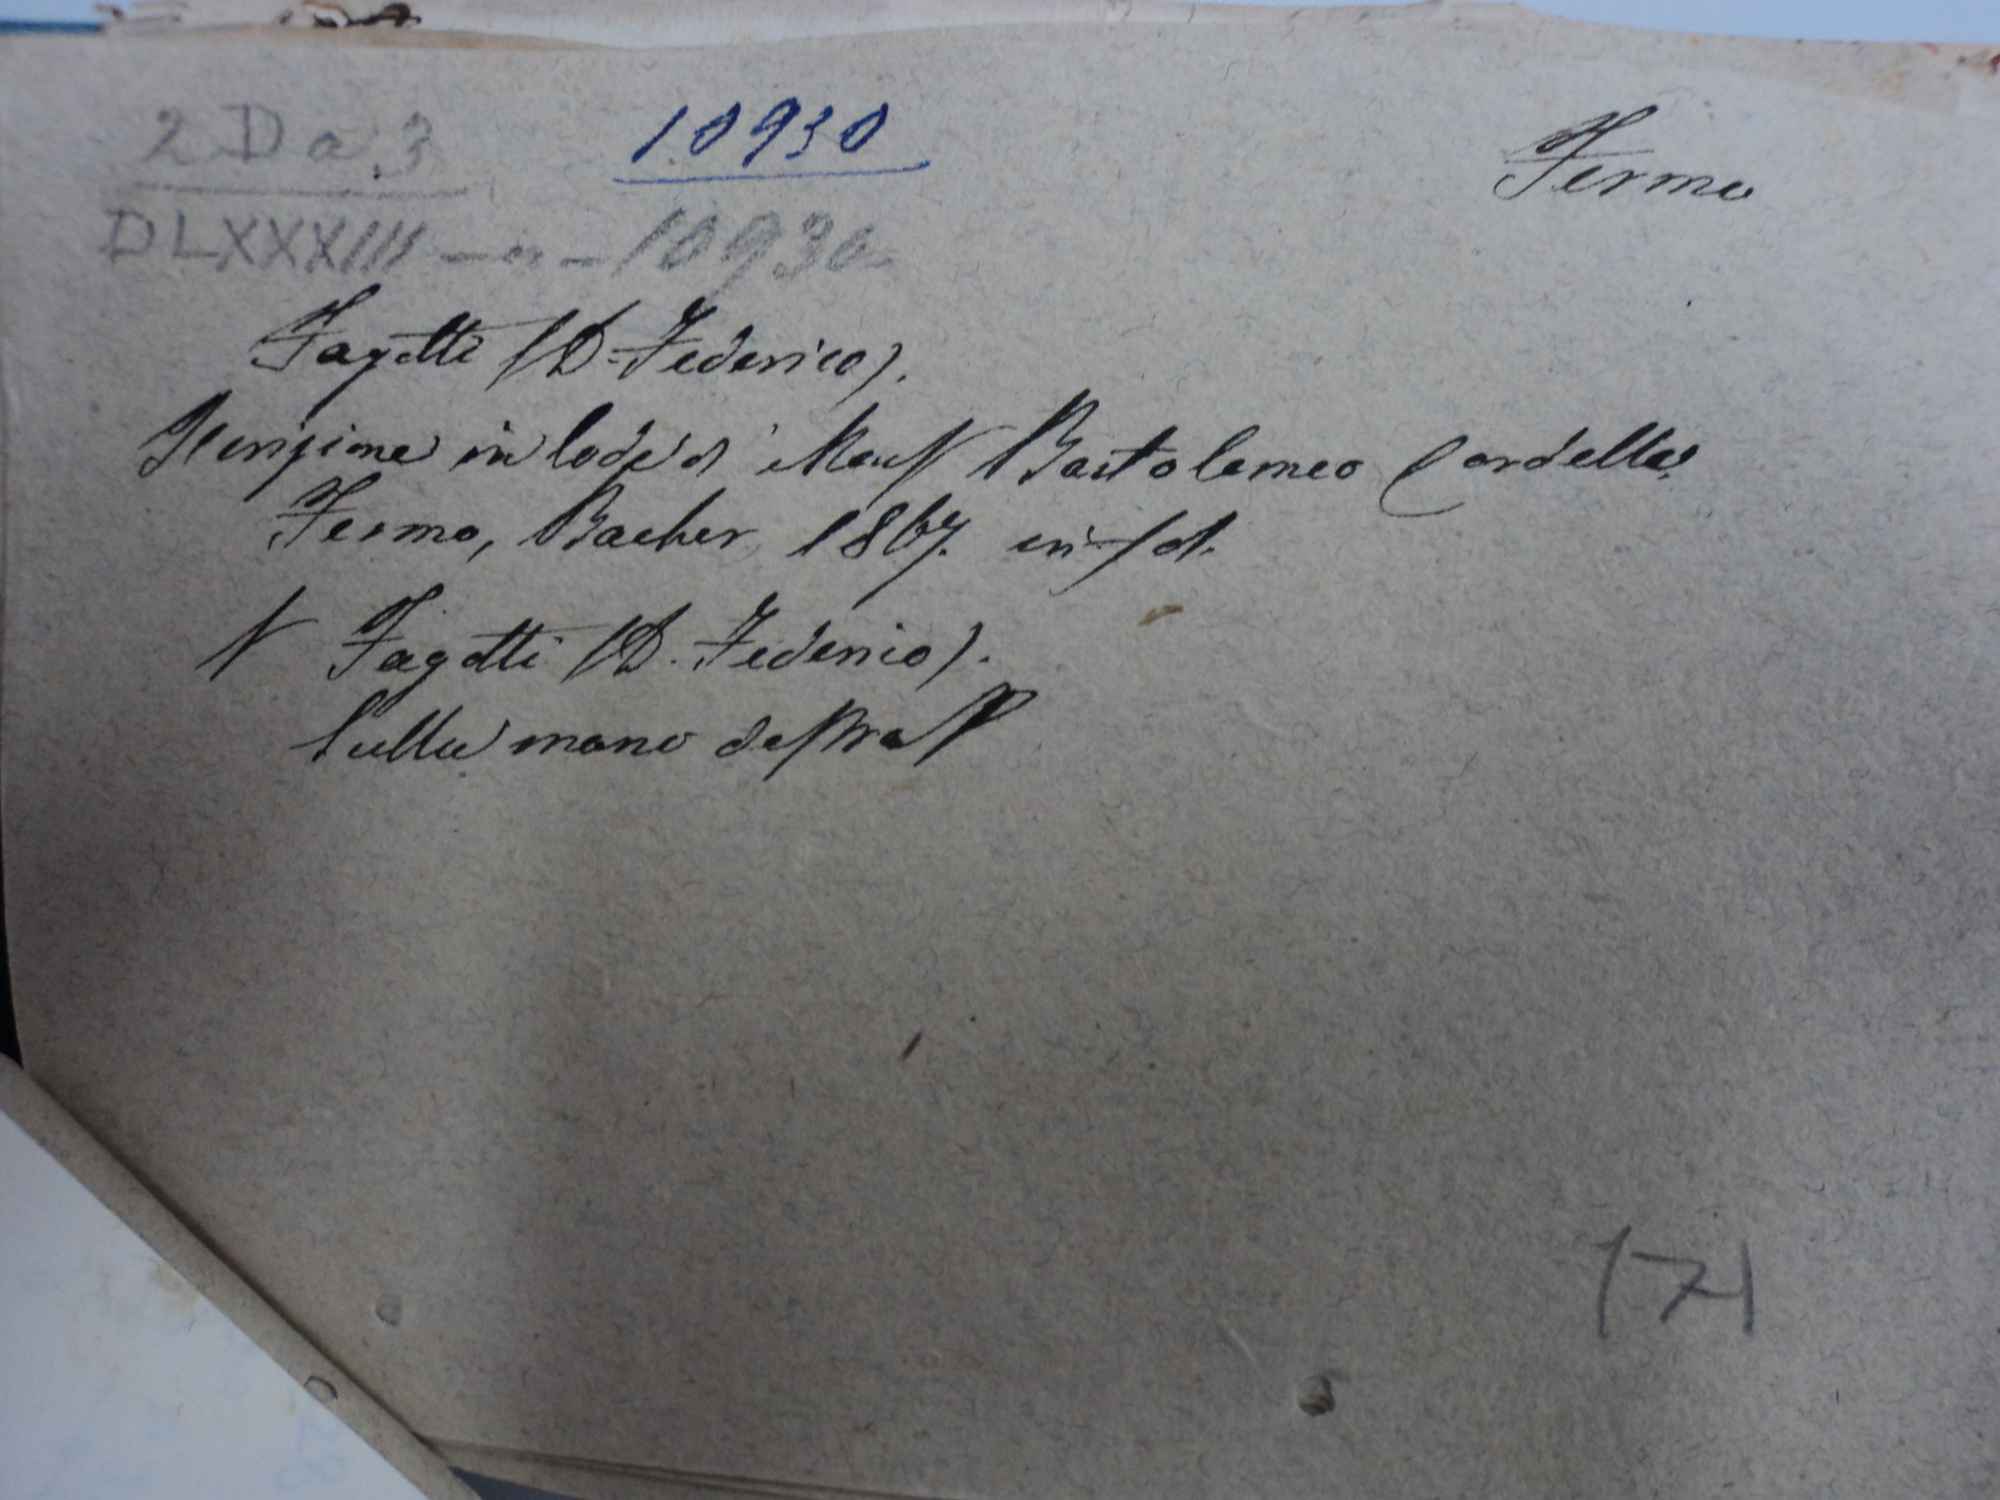 2 D a 3
10930
Fermo
DLXXXIII - n - 10930
Fagotti (D. Federico).
Iscrizione in lode di Mons. Bartolomeo Cordella
Fermo, Bacher, 1867. in-fol.
Fagotti (D. Federico).
Sulla mano destra
171